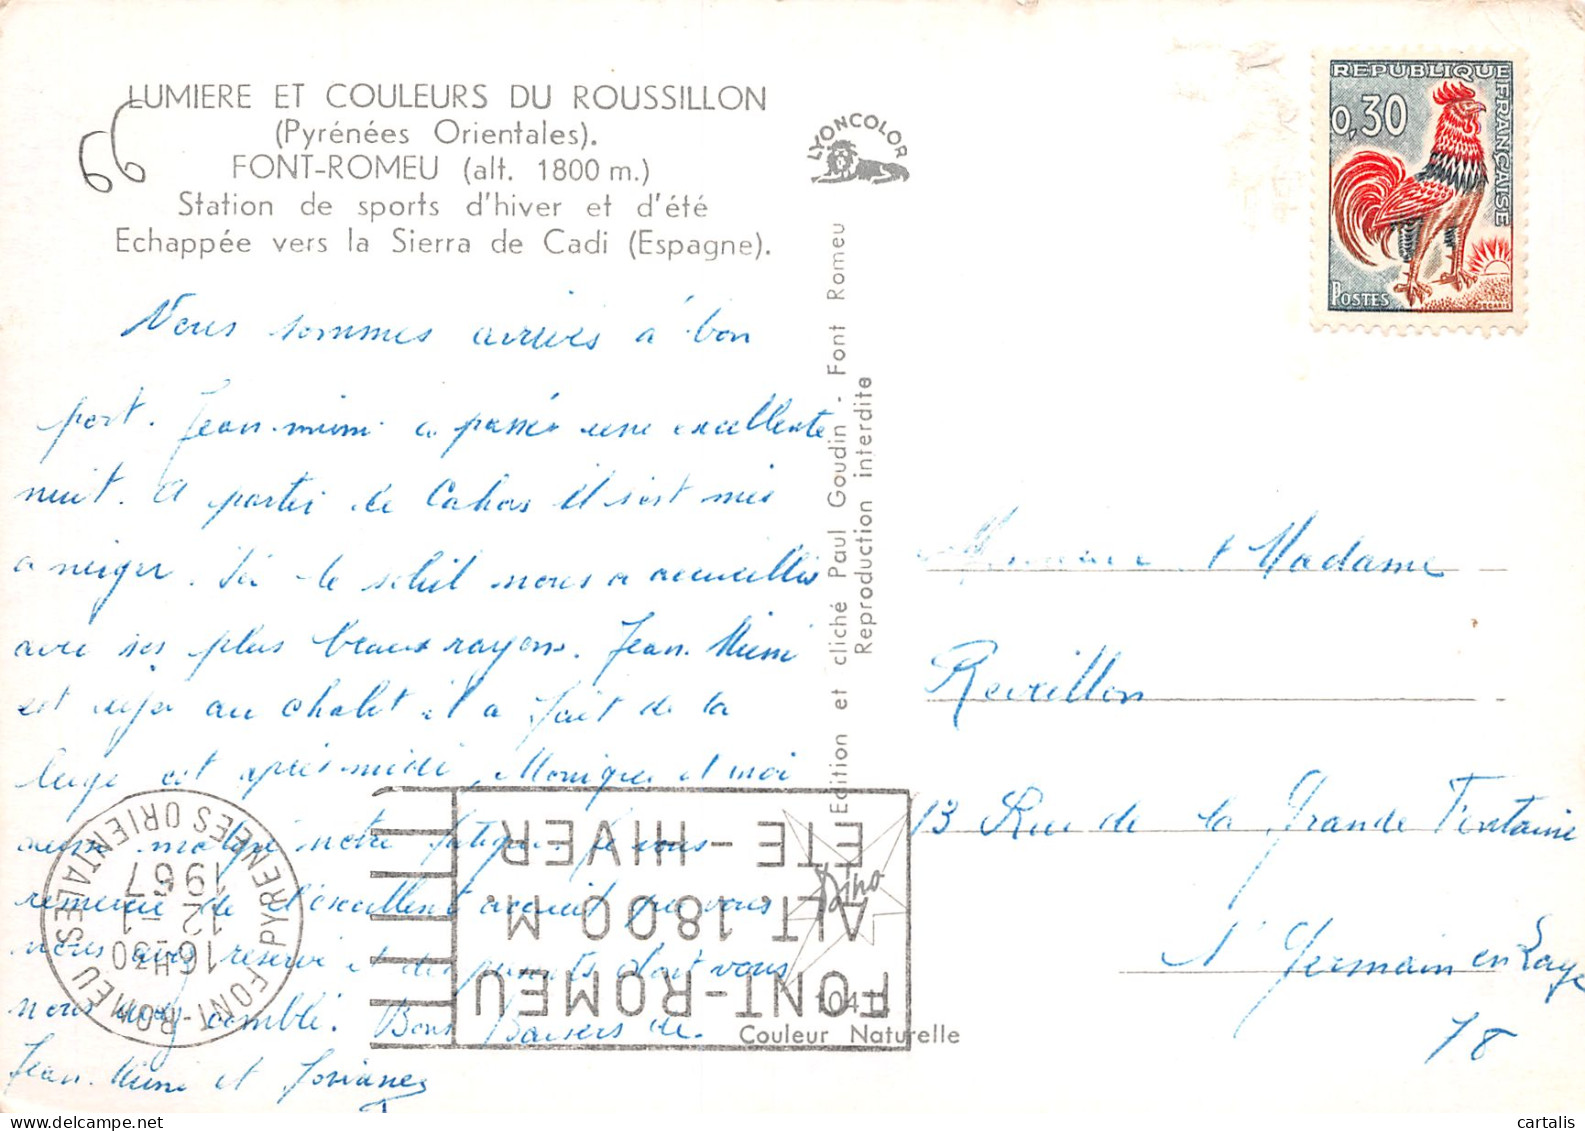 LUMIERE ET COULEURS DU ROUSSILLON
(Pyrénées Orientales).
FONT-ROMEU (alt. 1800 m.)
Station de sports d'hiver et d'été
Echappée vers la Sierra de Cadi (Espagne).
66
Nous sommes arrivés à bon
port. Jean-mimi a passé une excellente
nuit. A partir de Cahors il s'est mis
a neiger. Ici le soleil nous a accueillis
avec ses plus beaux rayons. Jean Mimi
est déjà au chalet il a fait de la
luge cet après-midi, Monique et moi
notre fatigue. Je vous
remercie de l'excellent accueil que vous
nous avez réservé et des présents dont vous
nous avez comblé. Bons Baisers de
Jean-Mimi et Josiane
LYONCOLOR
Edition et cliché Paul Goudin - Font Romeu
Reproduction interdite
REPUBLIQUE FRANÇAISE
0,30
POSTES
DECARIS
Monsieur & Madame
Reveillon
13 Rue de la Grande Fontaine
St Germain en Laye
78
FONT-ROMEU
ALT. 1800 M.
ETE - HIVER
FONT-ROMEU PYRENEES ORIENTALES
16H30
12-1
1967
Dino
Couleur Naturelle
cartalis